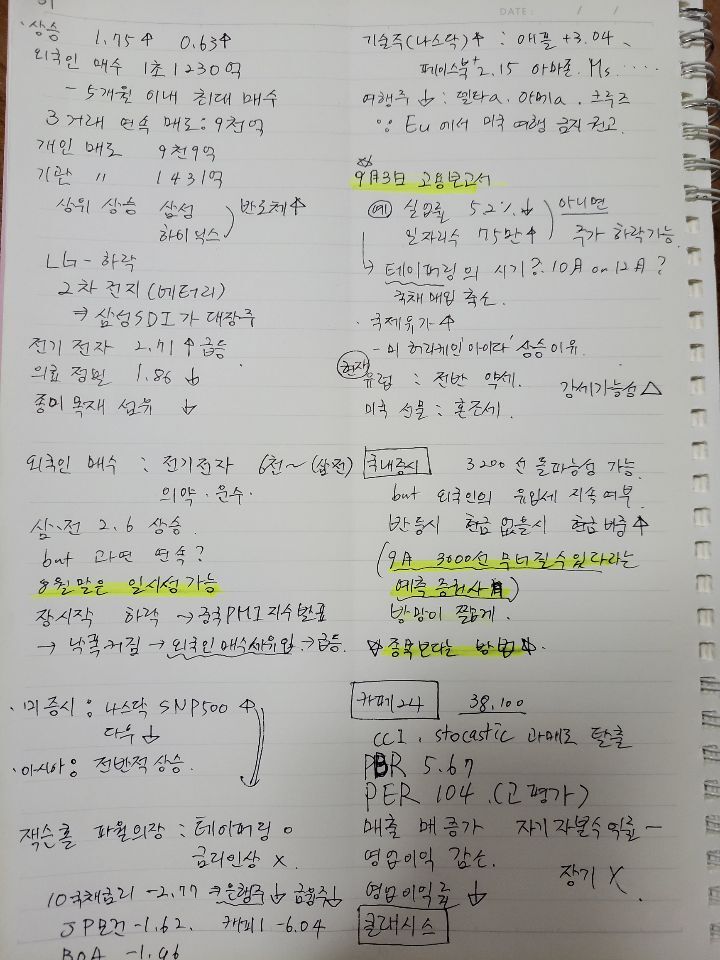 DATE : / /
· 상승 1.75↑ 0.63↑
외국인 매수 1조1230억
- 5개월 이내 최대 매수
3거래 연속 매도: 9천억
개인 매도 9천9억
기관 〃 1431억
상위 상승 삼성 반도체↑
하이닉스
LG - 하락
2차 전지 (베터리)
⇒ 삼성SDI가 대장주
전기 전자 2.71↑ 급등
의료 정밀 1.86↓
종이 목재 섬유 ↓
외국인 매수 : 전기전자 6천~ (삼전)
의약 · 운수 ·
삼전 2.6 상승
but 과연 연속?
8월말은 일시성 가능
장시작 하락 → 중국PMI지수발표
→ 낙폭커짐 → 외국인 매수세유입 → 급등.
· 미증시 : 나스닥 SNP500 ↑
다우↓
· 아시아 : 전반적 상승.
잭슨홀 파월의장 : 테이퍼링 o
금리인상 x.
10국채금리 -2.77 ⇒은행주↓ 금융주↓
JP모건 -1.62. 캐피 -6.04
BOA -1.96
기술주(나스닥)↑ : 애플 +3.04、
페이스북+2.15 아마존. Ms. ....
여행주 ↓ : 델타a. 아메a. 크루즈
∵ Eu에서 미국 여행 금지 권고.
9月3日 고용보고서
예 실업률 5.2%↓ 아니면
일자리수 75만↑ 주가 하락가능.
↳ 테이퍼링의 시기? 10月 or 12月?
국채매입 축소.
· 국제유가↑
- 미 허리케인 '아이다' 상승이유.
현재
유럽 : 전반 약세. 강세가능성△
미국 선물 : 혼조세.
국내증시 3200선 돌파능성 가능.
but 외국인의 유입세 지속여부.
반등시 현금 없을시 현금비중↑
(9月 3000선 무너질수있다라는
예측 증권사有)
방망이 짧게.
☆종목보다는 방법☆.
카페24 38.100
CCI. stocastic 과매도 탈출
PBR 5.67
PER 104. (고평가)
매출 매증가 자기자본수익률 —
영업이익 감소. 장기 X.
영업이익률 ↓
클래시스